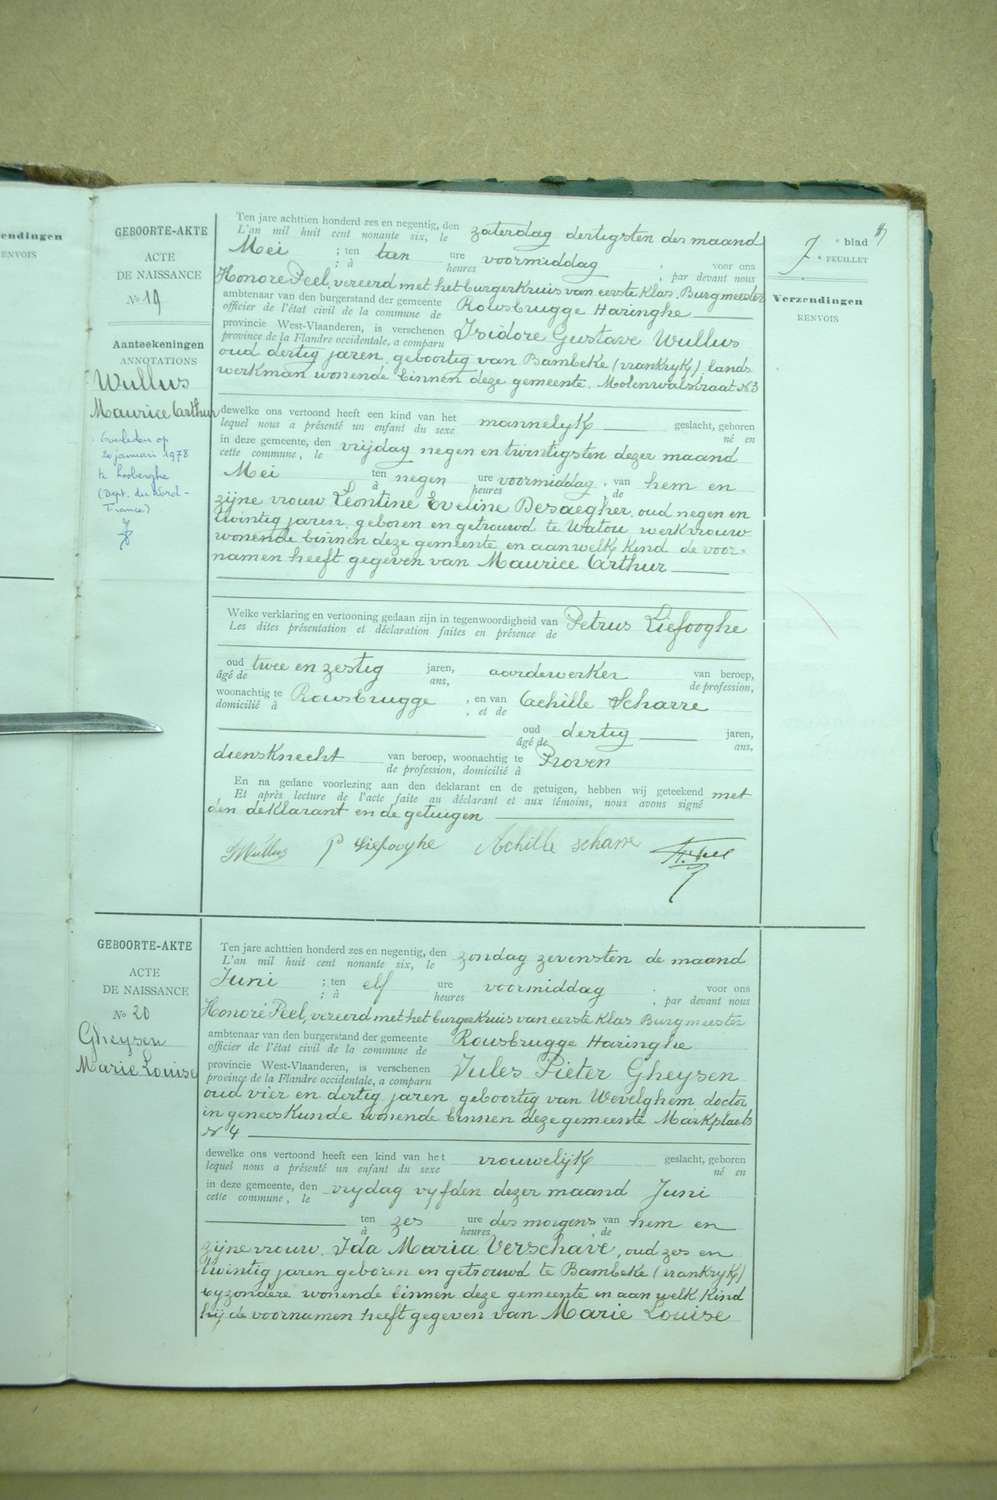 endingen
ENVOIS
GEBOORTE-AKTE
ACTE
DE NAISSANCE
No 19
Aanteekeningen
ANNOTATIONS
Wullus
Maurice Arthur
Overleden op
20 januari 1978
te
(Dept. du Nord -
France)
Ten jare achttien honderd zes en negentig, den
L'an mil huit cent nonante six, le
zaterdag dertigsten der maand
Mei ; ten tien ure voormiddag , voor ons
; à heures , par devant nous
Honoré Peel, vereerd met het burgerkruis van eerste klas, Burgmeester
ambtenaar van den burgerstand der gemeente
officier de l'état civil de la commune de
Rousbrugge Haringhe
provincie West-Vlaanderen, is verschenen
province de la Flandre occidentale, a comparu
Isidore Gustave Wullus
oud dertig jaren, geboortig van Bambeke (vrankryk) lands
werkman wonende binnen deze gemeente. Molenwalstraat N 3
dewelke ons vertoond heeft een kind van het
lequel nous a présenté un enfant du sexe
mannelyk geslacht, geboren
né en
in deze gemeente, den
cette commune, le
vrijdag negen en twintigsten dezer maand
Mei ten negen ure voormiddag, van hem en
à heures de
zijne vrouw Leontine Eveline Desaegher, oud negen en
twintig jaren, geboren en getrouwd te Watou werkvrouw
wonende binnen deze gemeente en aan welk kind de voor-
namen heeft gegeven van Maurice Arthur
Welke verklaring en vertooning gedaan zijn in tegenwoordigheid van
Les dites présentation et déclaration faites en présence de
Petrus Liefooghe
oud twee en zestig jaren, aardewerker van beroep,
âgé de ans, de profession,
woonachtig te Rousbrugge , en van Achille Scharre
domicilié à , et de
oud dertig jaren,
âgé de ans,
diensknecht van beroep, woonachtig te Proven
de profession, domicilié à
En na gedane voorlezing aan den deklarant en de getuigen, hebben wij geteekend met
Et après lecture de l'acte faite au déclarant et aux témoins, nous avons signé
den deklarant en de getuigen
Wullus P Liefooghe Achille Scharre H. Peel
7e blad
e FEUILLET
Verzendingen
RENVOIS
GEBOORTE-AKTE
ACTE
DE NAISSANCE
No 20
Gheysen
Marie Louise
Ten jare achttien honderd zes en negentig, den
L'an mil huit cent nonante six, le
zondag zevensten de maand
Juni ; ten elf ure voormiddag , voor ons
; à heures , par devant nous
Honoré Peel, vereerd met het burgerkruis van eerste klas Burgmeester
ambtenaar van den burgerstand der gemeente
officier de l'état civil de la commune de
Rousbrugge Haringhe
provincie West-Vlaanderen, is verschenen
province de la Flandre occidentale, a comparu
Jules Pieter Gheysen
oud vier en dertig jaren geboortig van Wevelghem, doctor
in geneeskunde wonende binnen deze gemeente Markplaats
N 4
dewelke ons vertoond heeft een kind van het
lequel nous a présenté un enfant du sexe
vrouwelijk geslacht, geboren
né en
in deze gemeente, den
cette commune, le
vrydag vyfden dezer maand Juni
ten zes ure des morgens, van hem en
à heures, de
zijne vrouw, Ida Maria Verschave, oud zes en
twintig jaren geboren en getrouwd te Bambeke (vrankryk)
byzondere wonende binnen deze gemeente en aan welk kind
hij de voornamen heeft gegeven van Marie Louise